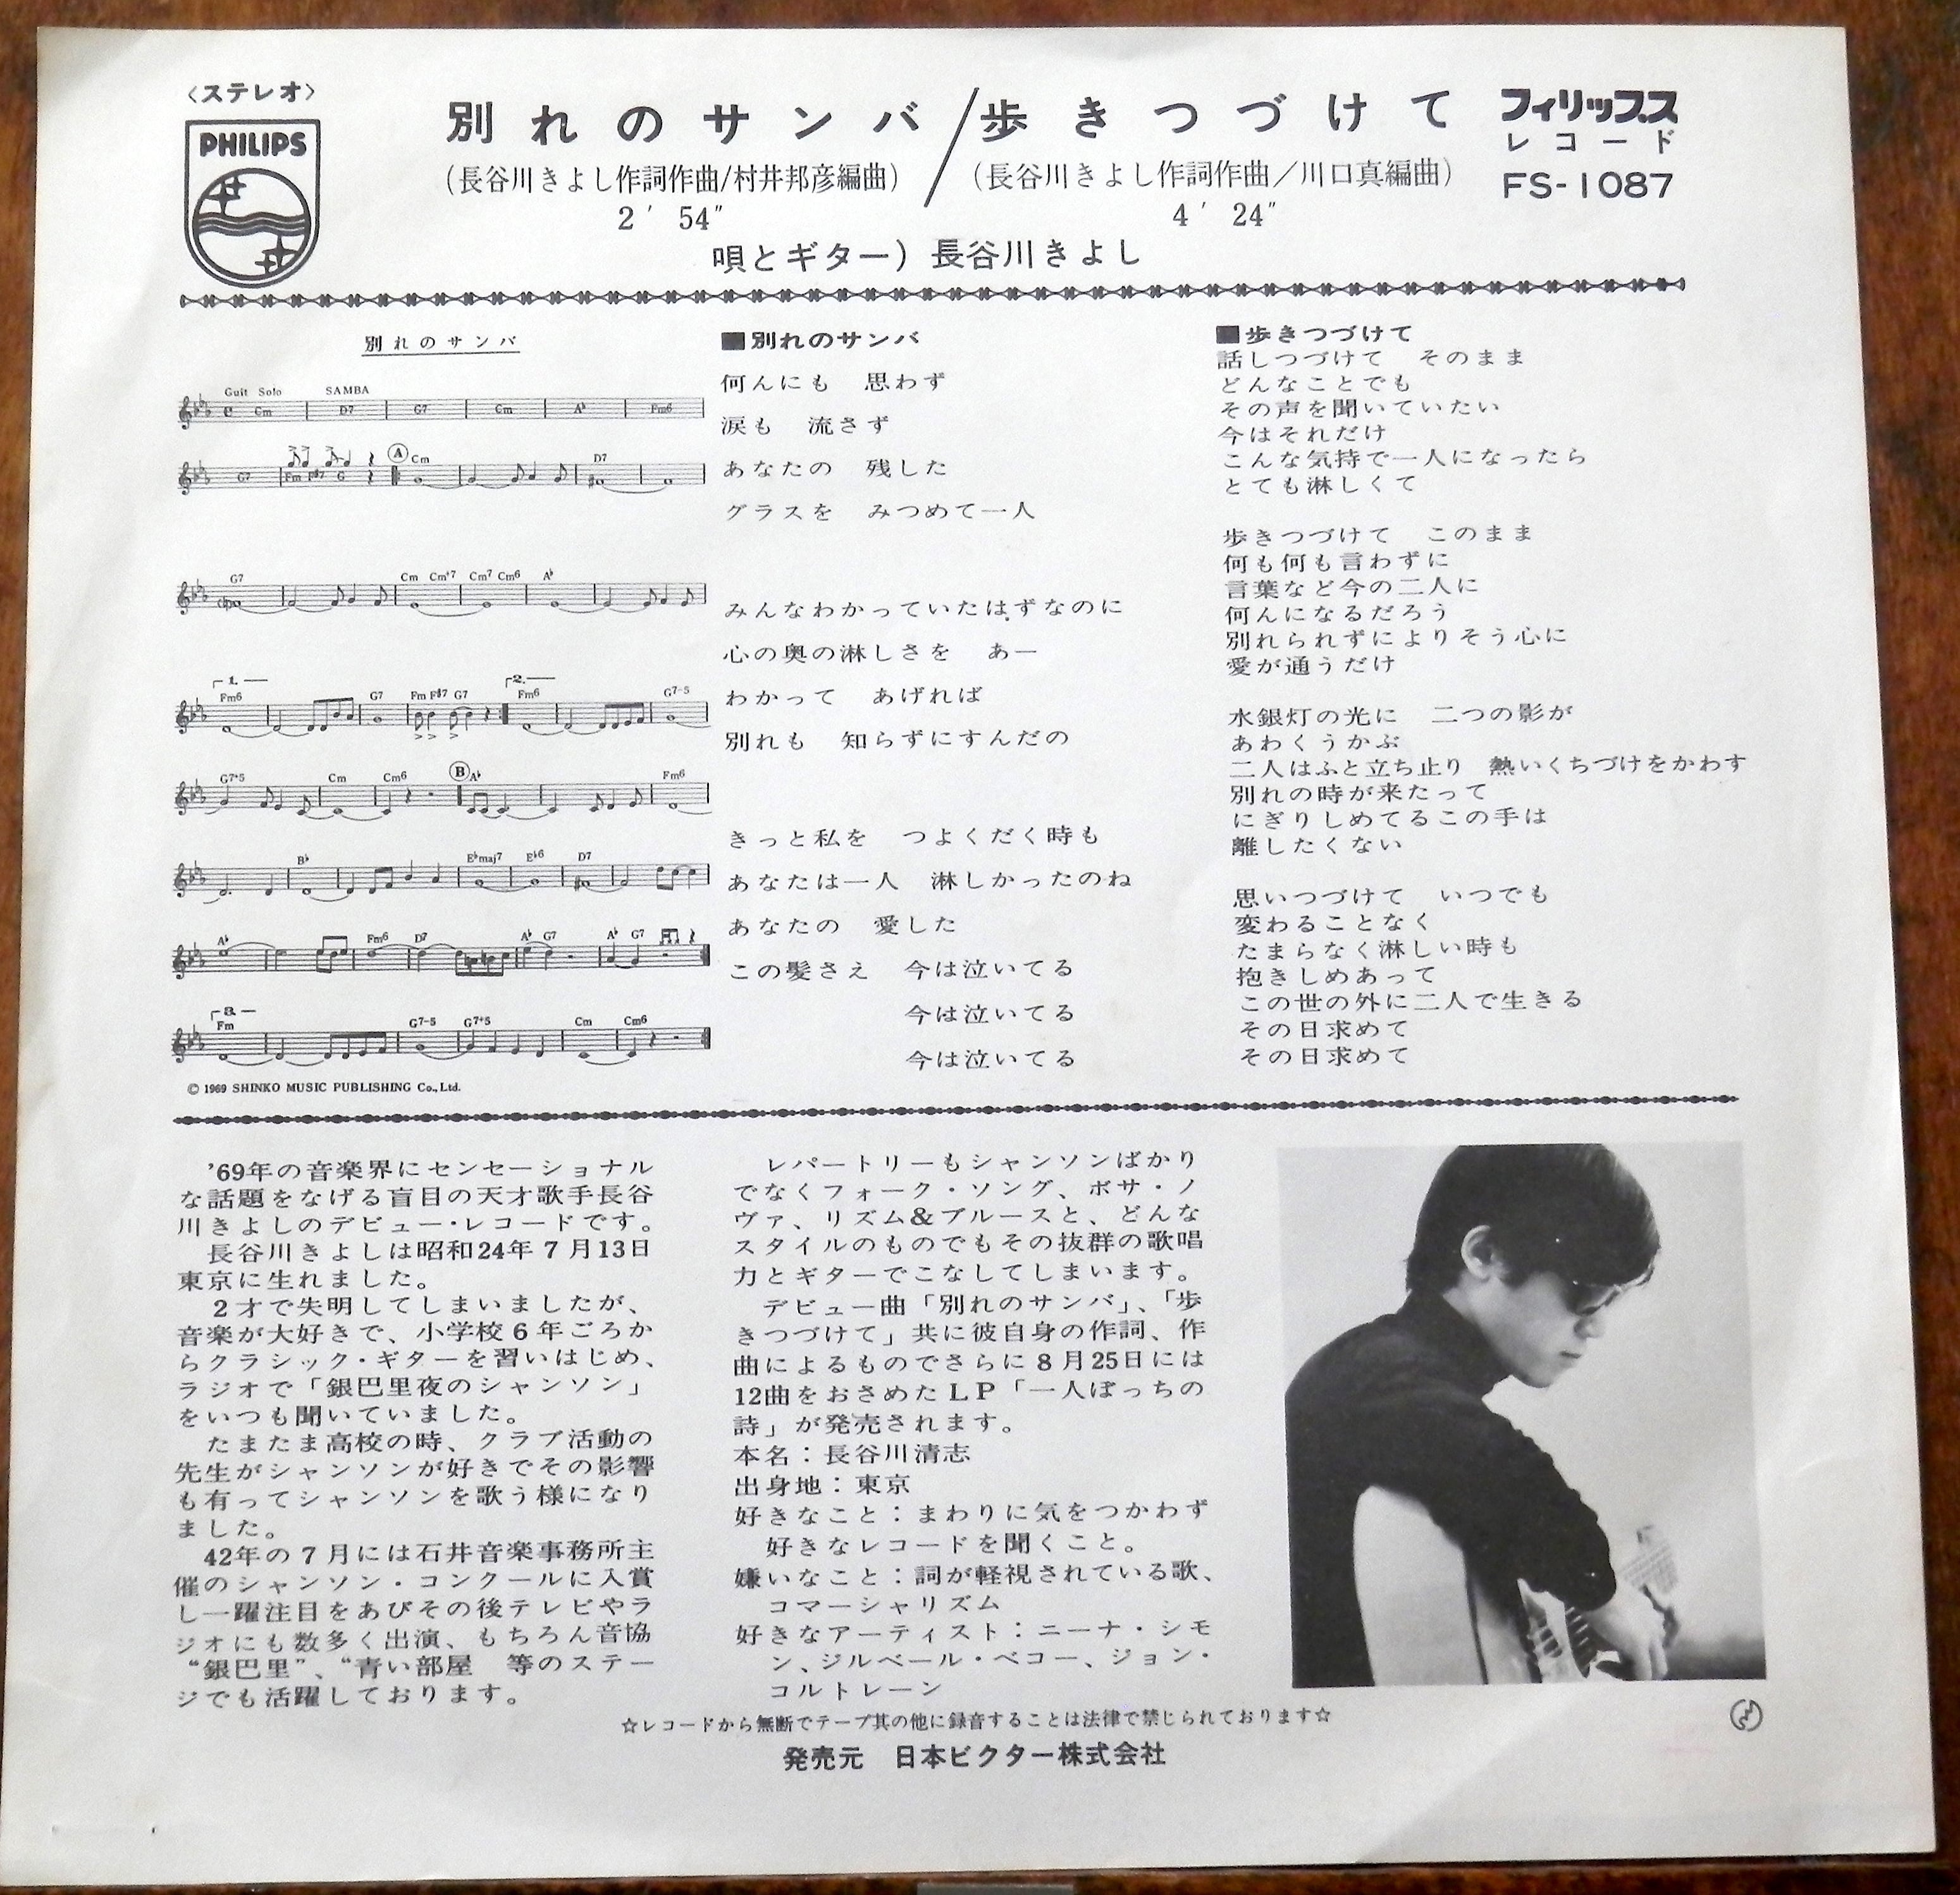 〈ステレオ〉
PHILIPS
別れのサンバ/歩きつづけて
(長谷川きよし作詞作曲/村井邦彦編曲)
2′54″
(長谷川きよし作詞作曲/川口真編曲)
4′24″
唄とギター)長谷川きよし
フィリップス
レコード
FS-1087
別れのサンバ
Guit Solo SAMBA
Cm D7 G7 Cm A♭ Fm6
G7 Fm F#7 G Ⓐ Cm D7
G7 Cm Cm+7 Cm7 Cm6 A♭
1.
Fm6 G7 Fm F#7 G7
2.
Fm6 G7-5
G7+5 Cm Cm6 Ⓑ A♭ Fm6
B♭ E♭maj7 E♭6 D7
A♭ Fm6 D7 A♭ G7 A♭ G7
3.
Fm G7-5 G7+5 Cm Cm6
© 1969 SHINKO MUSIC PUBLISHING Co., Ltd.
■別れのサンバ
何んにも 思わず
涙も 流さず
あなたの 残した
グラスを みつめて一人
みんなわかっていたはずなのに
心の奥の淋しさを あー
わかって あげれば
別れも 知らずにすんだの
きっと私を つよくだく時も
あなたは一人 淋しかったのね
あなたの 愛した
この髪さえ 今は泣いてる
今は泣いてる
今は泣いてる
■歩きつづけて
話しつづけて そのまま
どんなことでも
その声を聞いていたい
今はそれだけ
こんな気持で一人になったら
とても淋しくて
歩きつづけて このまま
何も何も言わずに
言葉など今の二人に
何んになるだろう
別れられずによりそう心に
愛が通うだけ
水銀灯の光に 二つの影が
あわくうかぶ
二人はふと立ち止り 熱いくちづけをかわす
別れの時が来たって
にぎりしめてるこの手は
離したくない
思いつづけて いつでも
変わることなく
たまらなく淋しい時も
抱きしめあって
この世の外に二人で生きる
その日求めて
その日求めて
’69年の音楽界にセンセーショナル
な話題をなげる盲目の天才歌手長谷
川きよしのデビュー・レコードです。
長谷川きよしは昭和24年7月13日
東京に生れました。
2才で失明してしまいましたが、
音楽が大好きで、小学校6年ごろか
らクラシック・ギターを習いはじめ、
ラジオで「銀巴里夜のシャンソン」
をいつも聞いていました。
たまたま高校の時、クラブ活動の
先生がシャンソンが好きでその影響
も有ってシャンソンを歌う様になり
ました。
42年の7月には石井音楽事務所主
催のシャンソン・コンクールに入賞
し一躍注目をあびその後テレビやラ
ジオにも数多く出演、もちろん音協
“銀巴里”、“青い部屋 等のステー
ジでも活躍しております。
レパートリーもシャンソンばかり
でなくフォーク・ソング、ボサ・ノ
ヴァ、リズム&ブルースと、どんな
スタイルのものでもその抜群の歌唱
力とギターでこなしてしまいます。
デビュー曲「別れのサンバ」、「歩
きつづけて」共に彼自身の作詞、作
曲によるものでさらに8月25日には
12曲をおさめたLP「一人ぼっちの
詩」が発売されます。
本名：長谷川清志
出身地：東京
好きなこと：まわりに気をつかわず
好きなレコードを聞くこと。
嫌いなこと：詞が軽視されている歌、
コマーシャリズム
好きなアーティスト：ニーナ・シモ
ン、ジルベール・ベコー、ジョン・
コルトレーン
☆レコードから無断でテープ其の他に録音することは法律で禁じられております☆
発売元 日本ビクター株式会社